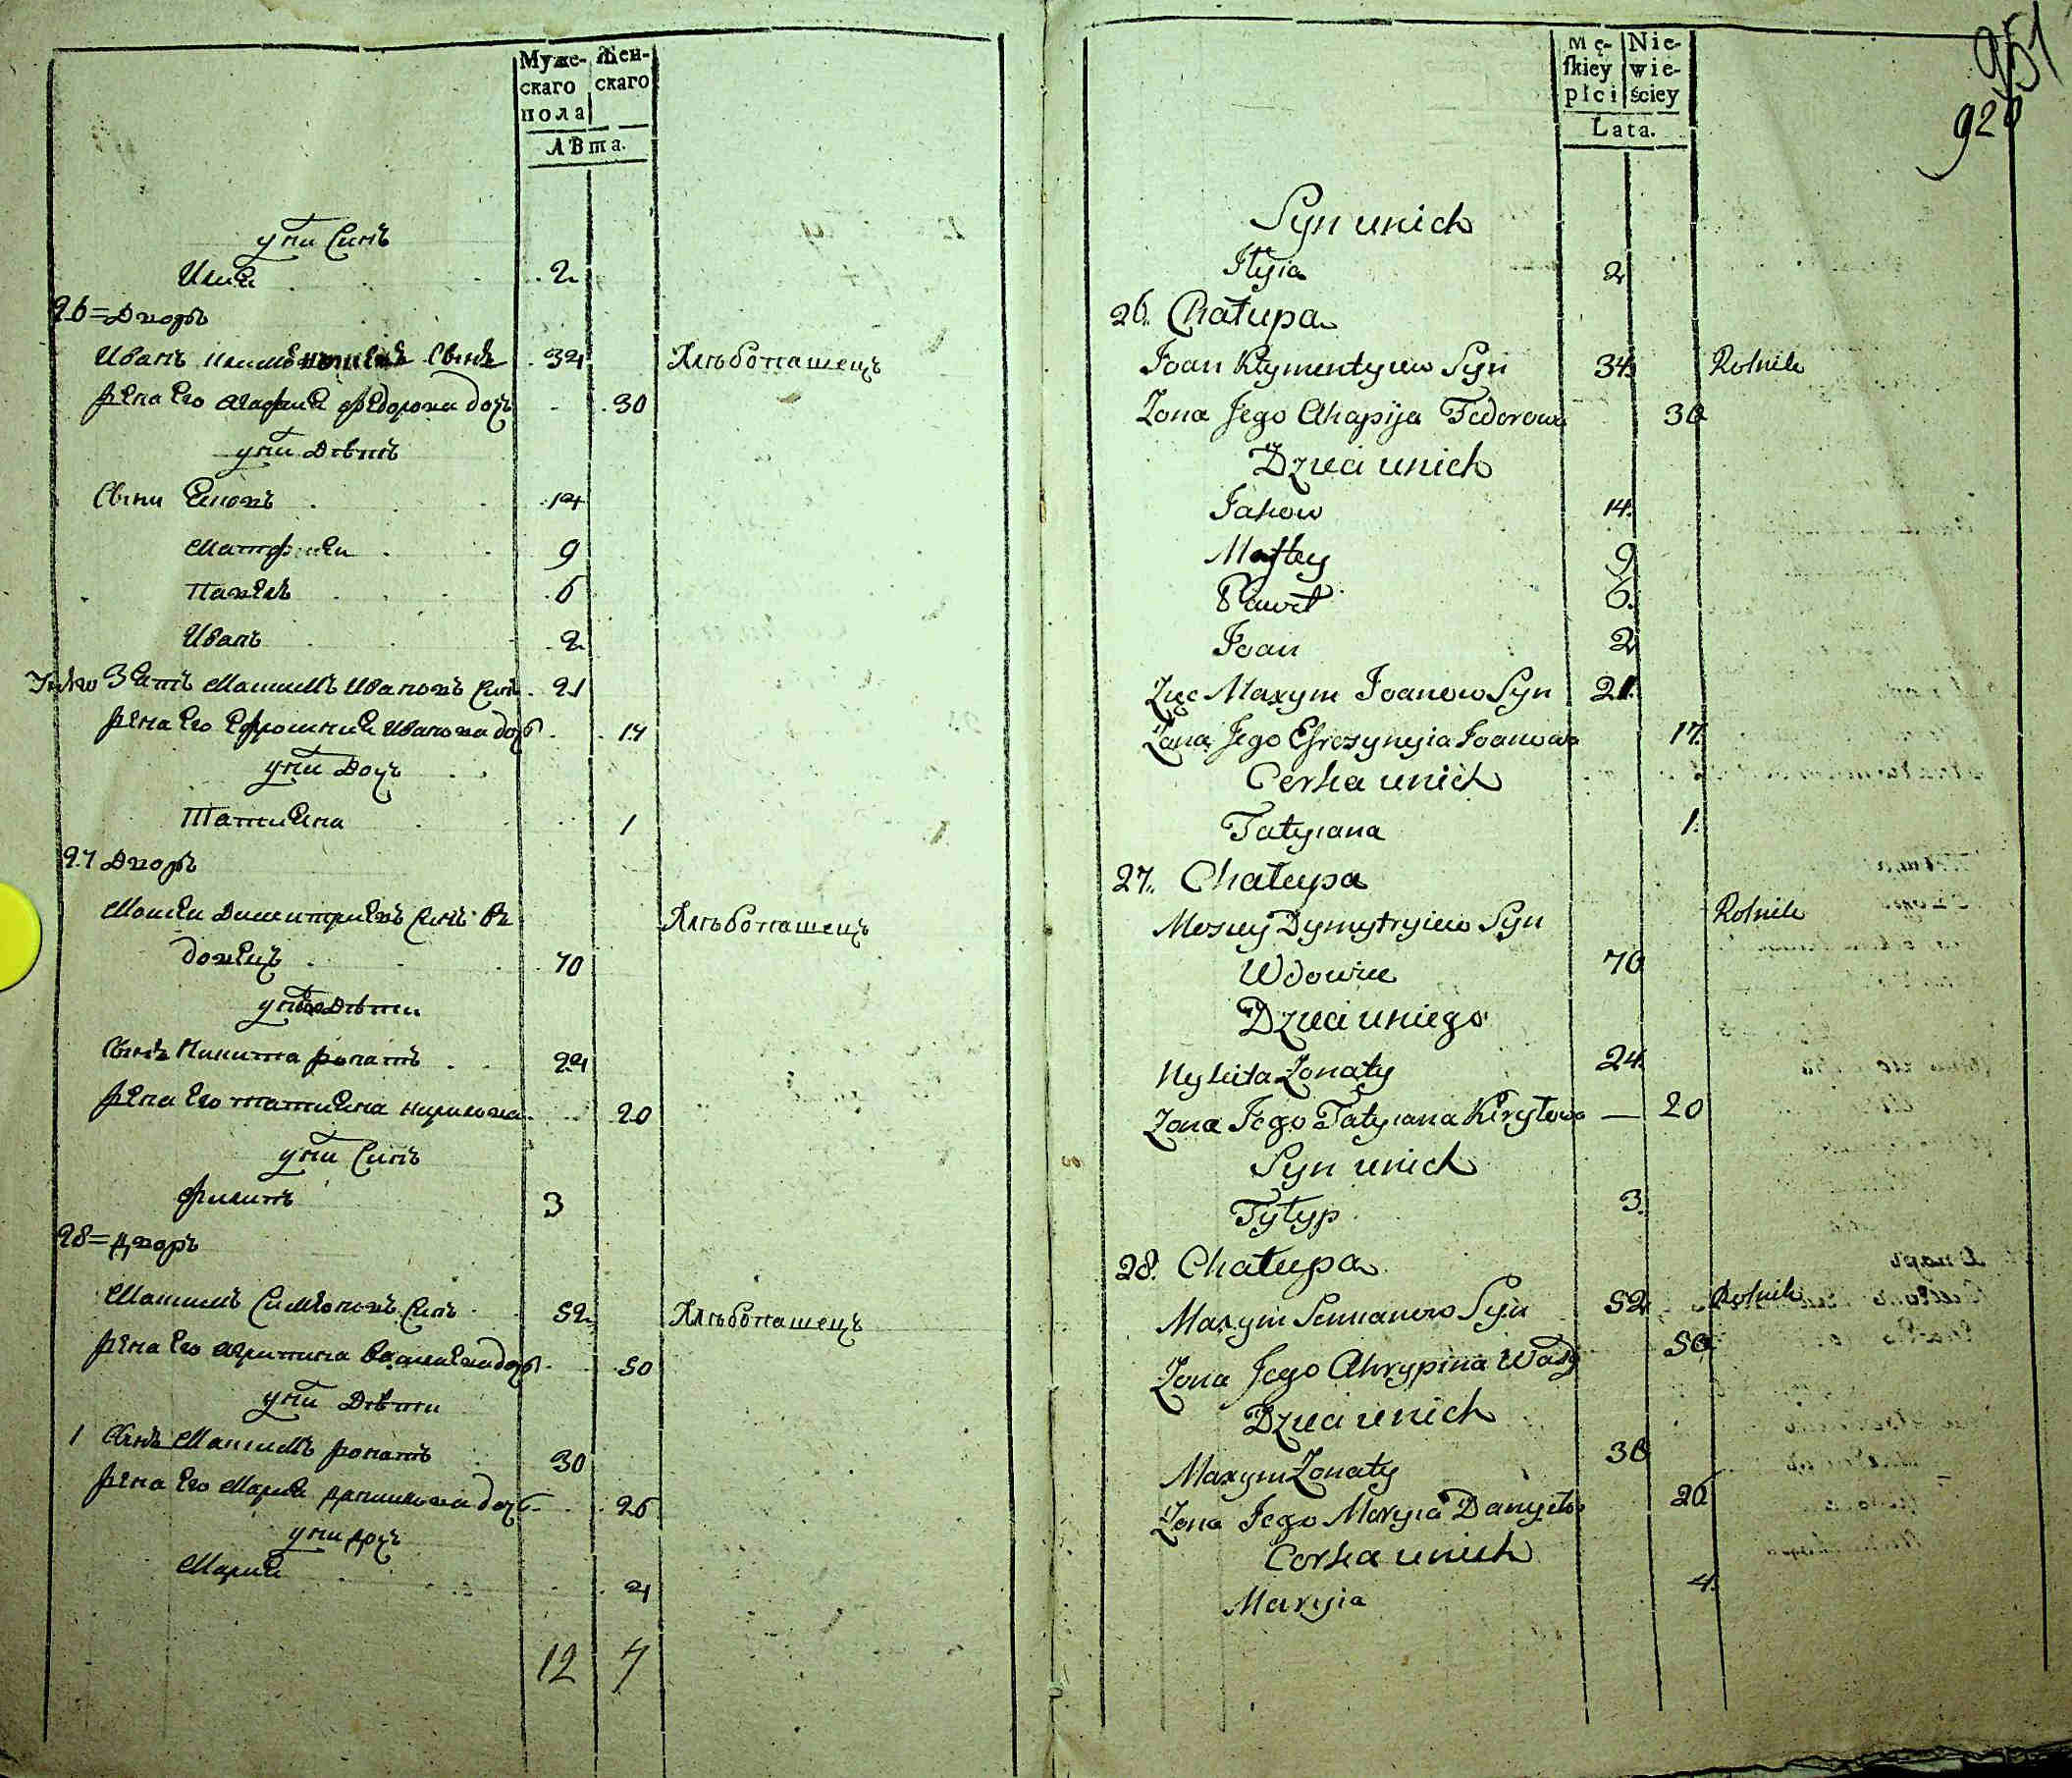 Муже-
скаго
пола
Жен-
скаго
лѣта.
у ни Синъ
Илиа 2
26 = Дворъ
Иванъ Синъ 34 Хлѣбопашецъ
Жена Его Агафиа Федорова дочь 30
у ни Дѣти
Сыни Яковъ 14
Матфеи 9
Павелъ 6
Иванъ 2
Зять Максимъ Ивановъ Синъ 21
Жена Его Ефросиниа Иванова дочь 17
у ни Дочь
Татиана 1
27 Дворъ
Мосеи Димитриевъ Синъ в
довецъ 70 Хлѣбопашецъ
у него Дѣти
Синъ Никита жонатъ 24
Жена Его татиана кирилова 20
у ни Синъ
Филипъ 3
28 = дворъ
Максимъ Симеоновъ Синъ 52 Хлѣбопашецъ
Жена Его Агрипина Василиева дочь 50
у ни Дѣти
1 Синъ Максимъ жонатъ 30
Жена Его Мариа данилова дочь 26
у ни дочь
Мариа 4
12 7
951
920
Mę-
skiey
płci
Nie-
wie-
ściey
Lata.
Syn unich
Iłyia 2
26. Chałupa
Joan Kłymentyiew Syn 34. Rolnik
Zona Jego Ahapija Fedorowa 30
Dzieci unich
Jakow 14.
Maftey 9
Paweł 6.
Joan 2
Zięc Maxym Joanow Syn 21.
Zona Jego Efrozynyia Joanowa 17.
Corka unich
Tatyiana 1.
27. Chałupa
Mosiey Dymytryiew Syn Rolnik
Wdowiec 70
Dzieci uniego
Nykita Zonaty 24.
Zona Jego Tatyiana Kiryłowa — 20
Syn unich
Fyłyp 3.
28. Chałupa
Maxym Semianow Syn 52 Rolnik
Zona Jego Ahrypina Wasy 50
Dzieci unich
Maxym Zonaty 30
Zona Jego Maryia Danyło 26
Corka unich
Maryia 4.